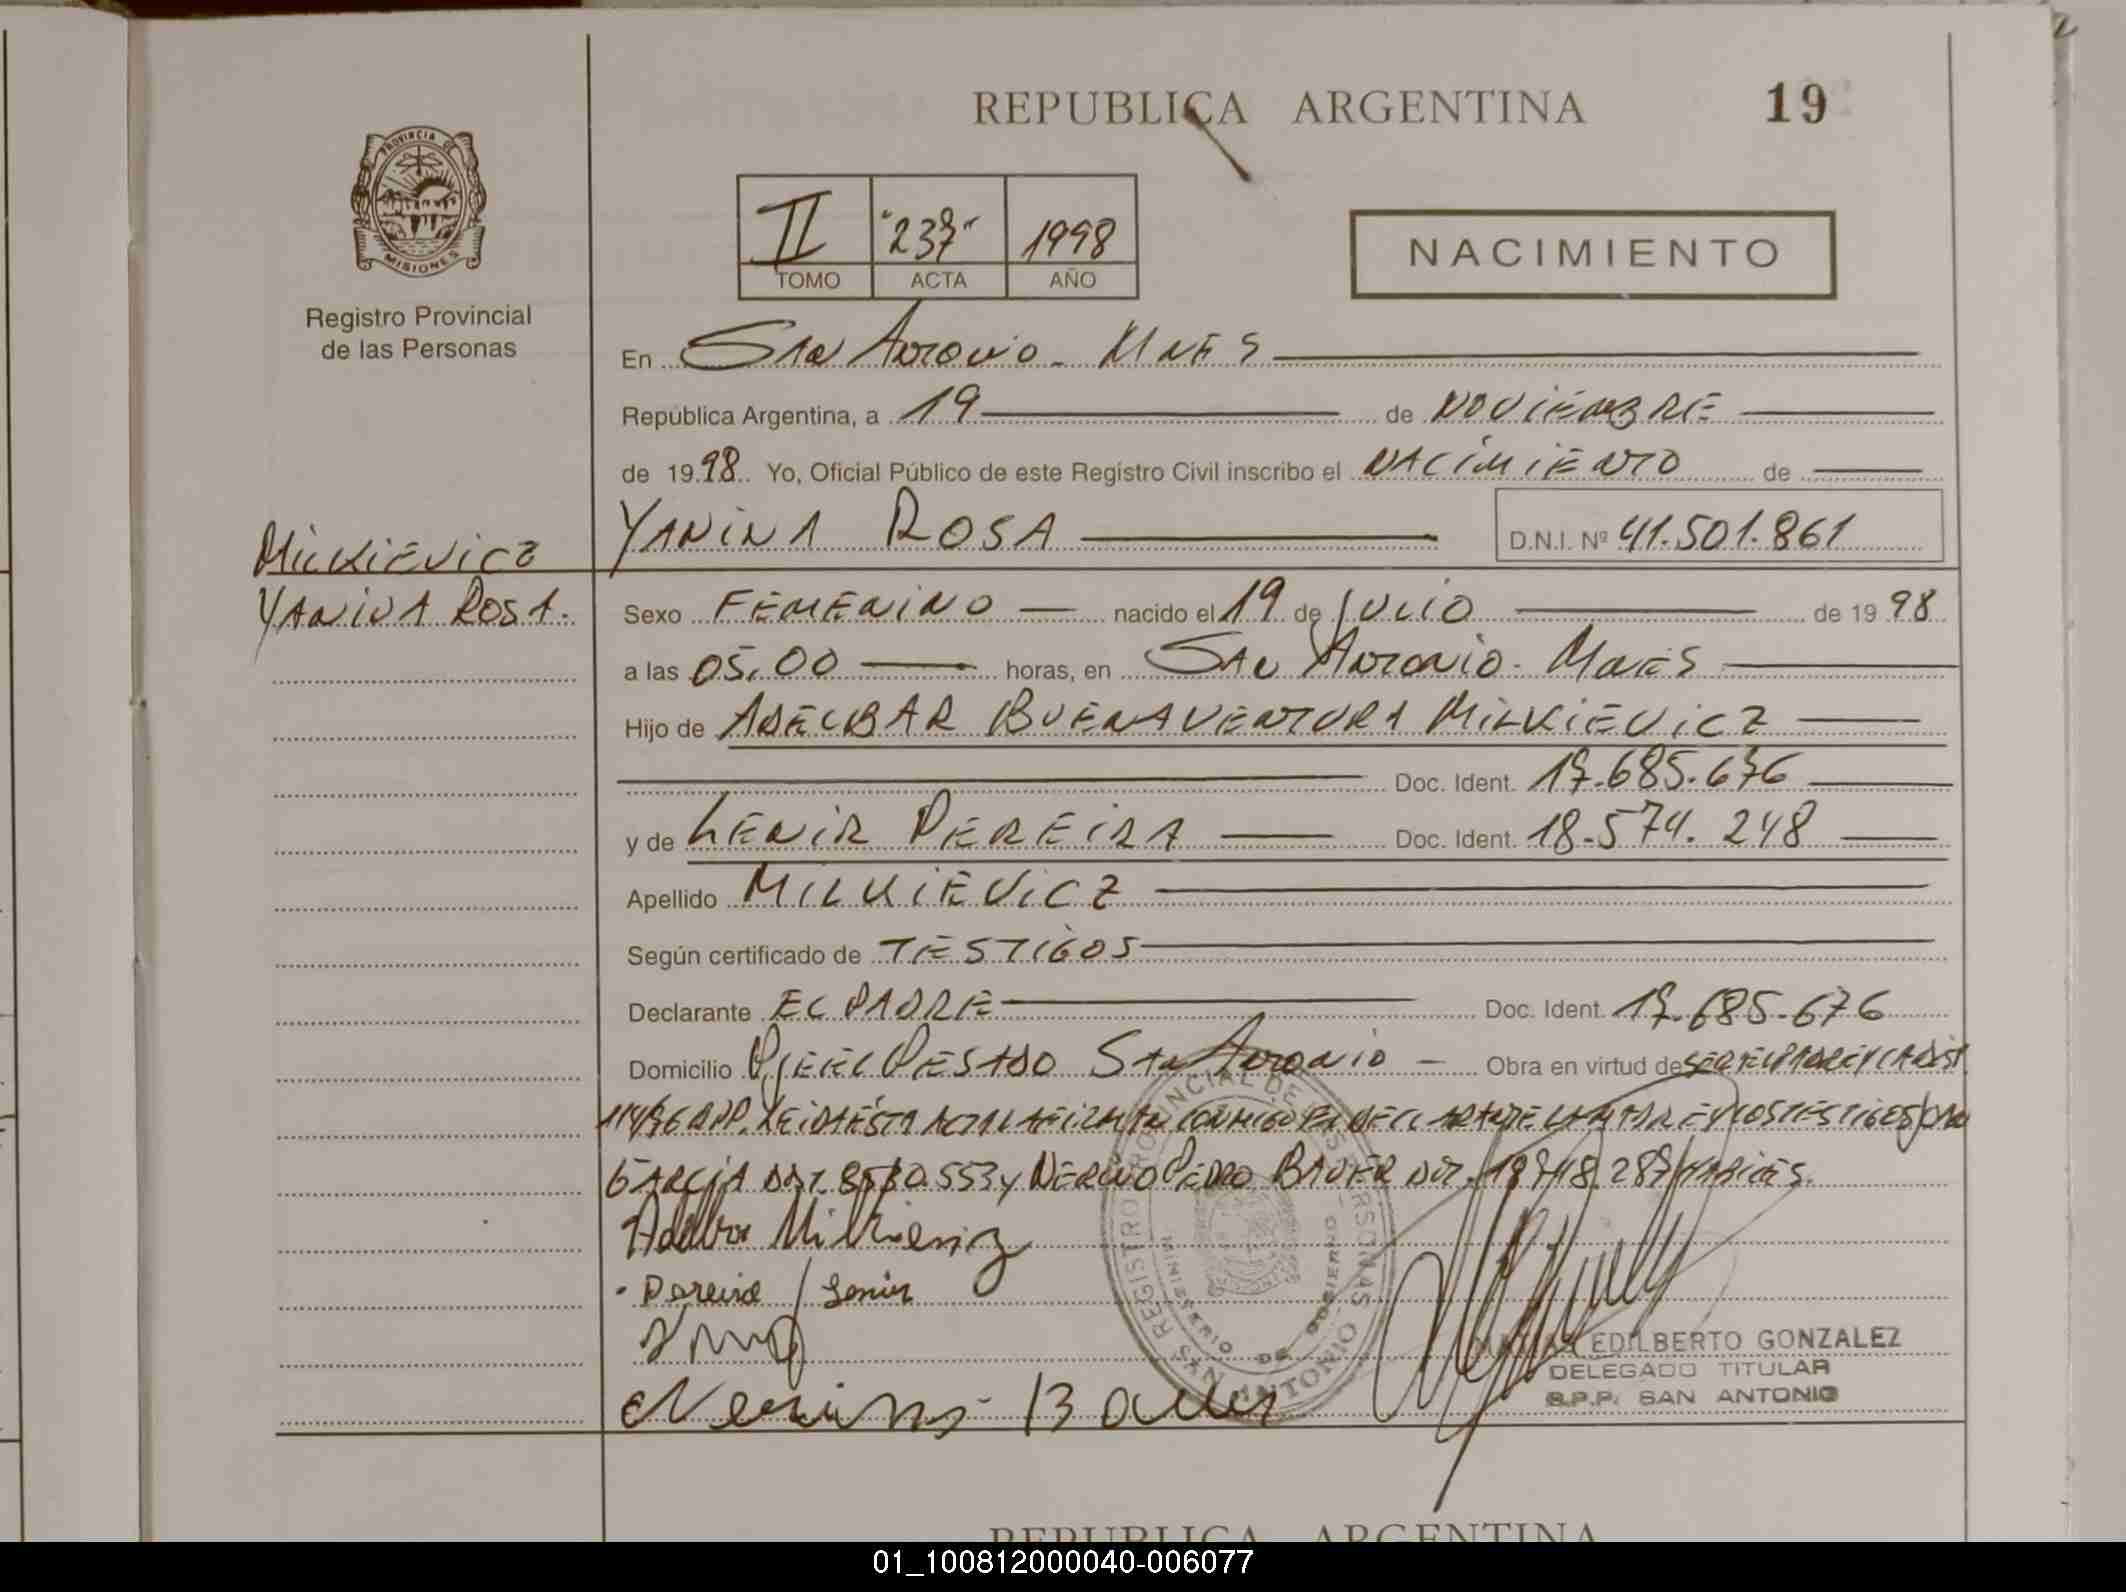 REPUBLICA ARGENTINA
19
PROVINCIA DE
MISIONES
Registro Provincial
de las Personas
II "237" 1998
TOMO ACTA AÑO
NACIMIENTO
En San Antonio - Mnes
República Argentina, a 19 de NOVIEMBRE
de 1998. Yo, Oficial Público de este Registro Civil inscribo el NACIMIENTO de
YANINA ROSA D.N.I. Nº 41.501.861
MILKIEVICZ
YANINA ROSA.
Sexo FEMENINO nacido el 19 de JULIO de 1998
a las 05.00 horas, en SAN ANTONIO - MNES
Hijo de ADELBAR BUENAVENTURA MILKIEVICZ
Doc. Ident. 17.685.676
y de LENIR PEREIRA Doc. Ident. 18.574.248
Apellido MILKIEVICZ
Según certificado de TESTIGOS
Declarante EL PADRE Doc. Ident. 17.685.676
Domicilio PJE EL PESADO SAN ANTONIO - Obra en virtud de SER EL PADRE Y LA DIST.
114/96 RPP. LEIDA ESTA ACTA LA FIRMAN CONMIGO EL DECLARANTE LA MADRE Y LOS TESTIGOS
GARCIA DNI. 553 Y NERINO PEDRO BAUER DNI.
Milkievicz
Pereira Lenir
Bauer
REGISTRO PROVINCIAL DE LAS PERSONAS
MINISTERIO DE GOBIERNO
SAN ANTONIO
MATIAS EDILBERTO GONZALEZ
DELEGADO TITULAR
R.P.P. SAN ANTONIO
REPUBLICA ARGENTINA
01_100812000040-006077